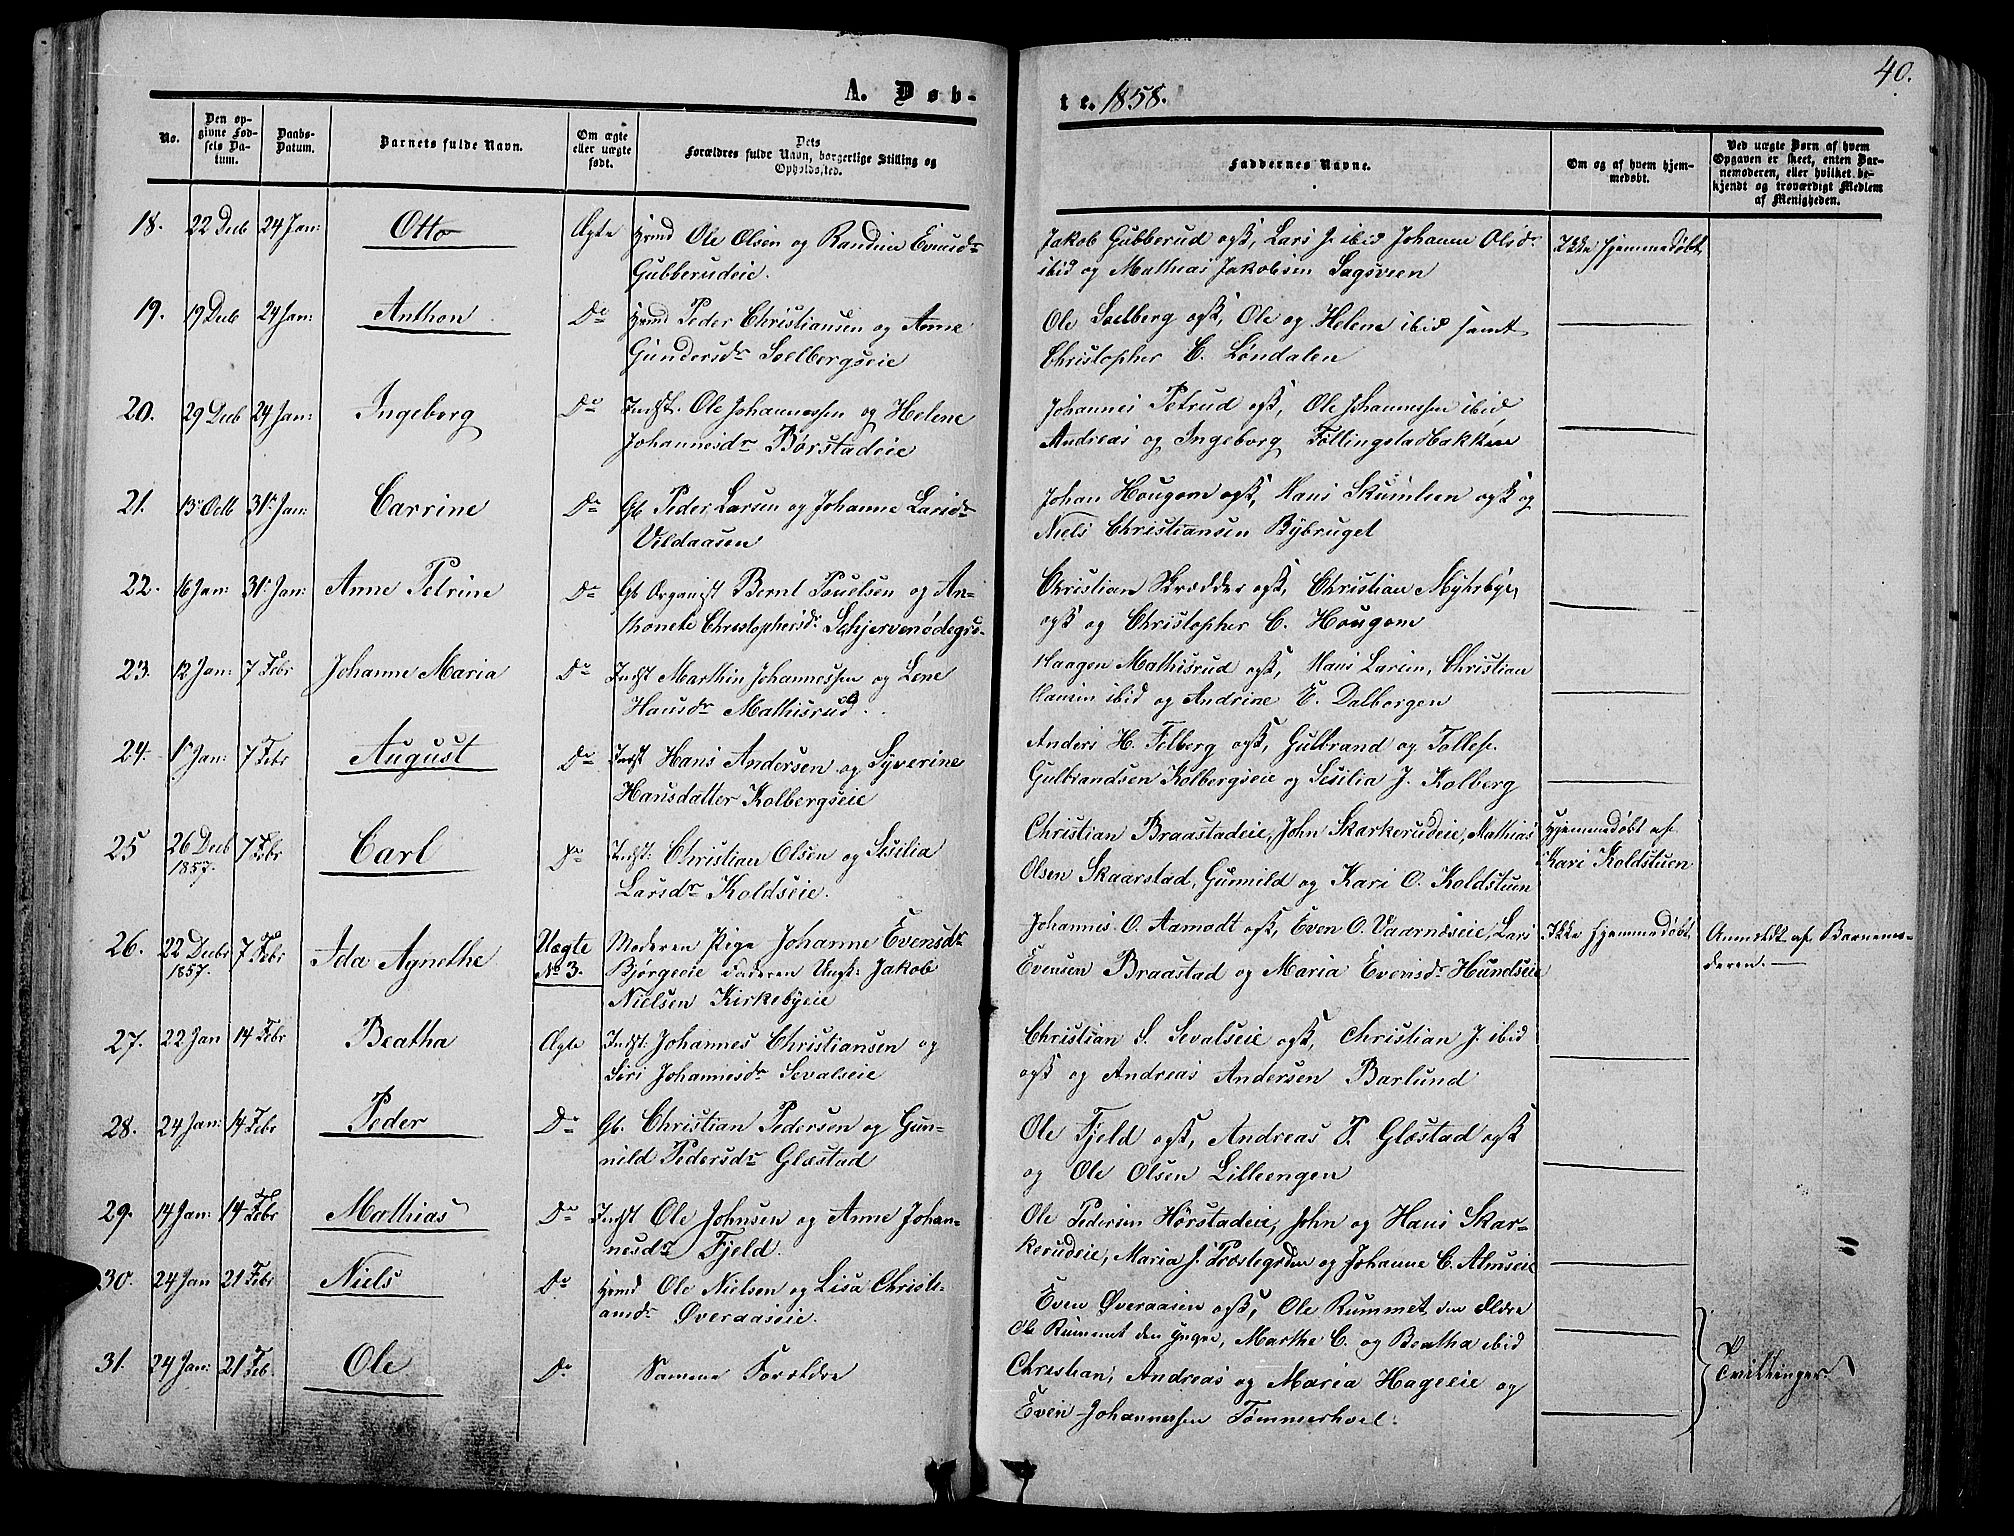 40.
A. Døb-
te. 1858.
No.
Den op-
givne Fød-
sels Da-
tum.
Daabs-
Datum.
Barnets fulde Navn.
Om ægte
eller uægte
født.
Dets
Forældres fulde Navn, borgerlige Stilling og
Opholdssted.
Faddernes Navne.
Om og af hvem hjem-
medøbt.
Ved uægte Børn af hvem
Opgaven er skeet, enten Bar-
nemoderen, eller hvilket be-
kjendt og troværdigt Medlem
af Menigheden.
18. 22 Decb 24 Jan: Otto Ægte Hrmd Ole Olsen og Randine Evensdr
Gubberudeie.
Jakob Gubberud ogsk, Lars J. ibid Johanne Olsdr
ibid og Mathias Jakobsen Sagsveen
Ikke hjemmedøbt
19. 19 Decb 24 Jan: Anthon Do Hrmd Peder Christiansen og Anne
Gundersdr Soelbergseie
Ole Soelberg ogsk, Ole og Helene ibid samt
Christopher C. Løndalen
20. 29 Decb 24 Jan: Ingeborg Do Indst. Ole Johannessen og Helene
Johannesdr Børstadeie
Johannes Petrud ogsk, Ole Johannessen ibid
Andreas og Ingeborg Föllingstadbakken
21. 13 Octb 31 Jan: Carrine Do Gb Peder Larsen og Johanne Larsdr
Vildaasen
Johan Hougom ogsk, Hans Skumlien ogsk og
Niels Christiansen Bybruget
22. 16 Jan: 31 Jan: Anne Petrine Do Gb Organist Bernt Pouelsen og An-
thonete Christophersdr Schjervenødegrd
Christian Skrædder ogsk, Christian Myhrbye,
ogsk og Christopher C. Hougom
23. 12 Jan: 7 Febr Johanne Maria Do Indst Marthin Johannessen og Lene
Hansdr Mathisrud.
Haagen Mathisrud ogsk, Hans Larsen, Christian
Hansen ibid og Andrine E. Dalborgen
24. 1 Jan: 7 Febr August Do Indst Hans Andersen og Syverine
Hansdatter Kolbergseie
Anders H. Felberg ogsk, Gulbrand og Tollef
Gulbrandsen Kolbergseie og Sisilia J. Kolberg
25 26 Decb
1857. 7 Febr Carl Do Indst: Christian Olsen og Sisilia
Larsdr Koldseie.
Christian Braastadeie, John Skarkerudeie, Mathias
Olsen Skaarstad, Gunnild og Kari O. Koldstuen
Hjemmedøbt af
Kari Koldstuen
26. 22 Decbr
1857. 7 Febr Ada Agnethe Uægte
No 3. Moderen Pige Johanne Evensdr
Bjørgeeie Faderen Ungk: Jakob
Nielsen Kirkebyeie
Johannes O. Aamodt ogsk, Even O. Vaarnæseie, Lars
Evensen Braastad og Maria Evensdr Hundseie
Ikke hjemmedøbt
Anmeldt af Barnemo-
deren.
27. 22 Jan 14 Febr Beatha Ægte Indst: Johannes Christiansen og
Siri Johannesdr Sevalseie
Christian S. Sevalseie ogsk, Christian J. ibid
ogsk og Andreas Andersen Barlund
28. 24 Jan: 14 Febr Peder Do Gb. Christian Pedersen og Gun-
nild Pedersdr Glæstad
Ole Fjeld ogsk, Andreas P. Glæstad ogsk
og Ole Olsen Lilleengen
29. 14 Jan: 14 Febr Mathias Do Indst Ole Johnsen og Anne Johan-
nesdr Fjeld.
Ole Pedersen Hørstadeie, John og Hans Skar-
kerudeie, Maria J. Præstegrden og Johanne C. Almseie
30. 24 Jan 21 Febr Niels Do Hrmd Ole Nielsen og Lisa Christi-
ansdr Øveraaseie.
Even Øveraasen ogsk, Ole Rummet den ældre
Ole Rummet den yngre, Marthe C. og Beatha ibid
31. 24 Jan: 21 Feb. Ole Do Samme Forældre
Christian, Andreas og Maria Hageeie og
Even Johannessen Tømmerhoel.
Tvillinger